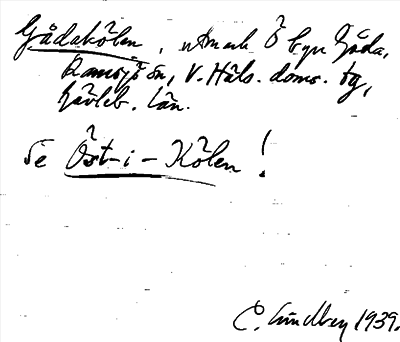 Gådakölen, utmark Ö byn Gåda,
Ramsjö sn, V. Häls. doms. tg,
Gävleb. län.
Se Öst-i-Kölen!
C. Lindberg 1939.